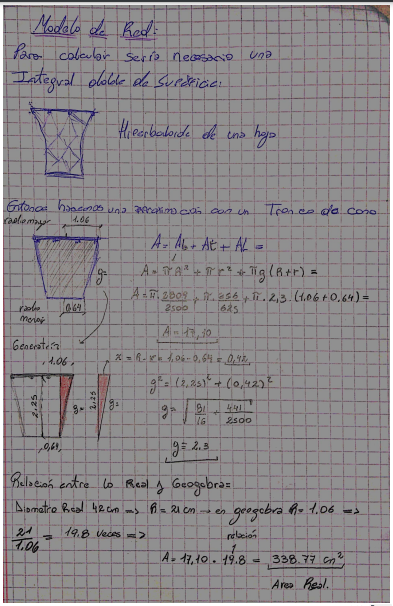 Modelo de Red:
Para calcular sería necesario una
Integral doble de Superficie:
Hiperboloide de una hoja
Entonces hacemos una aproximación con un Tronco de cono
radio mayor 1.06
A = Ab + At + AL =
g=
A = π R² + π r² + π g (R+r) =
A = π. 2809/2500 + π. 256/625 + π. 2,3. (1.06 + 0,64) =
radio menor 0,64
A = 17,10
Generatriz
1.06
x = R - r = 1.06 - 0,64 = 0,42
2,25 g= 2,25 g=
g² = (2,25)² + (0,42)²
g = √81/16 + 441/2500
0,64
g = 2.3
Relación entre lo Real y Geogebra =
Diametro Real 42 cm => R = 21 cm → en geogebra R = 1.06 =>
21/1.06 = 19.8 veces =>
relación
A = 17,10 . 19.8 = 338.77 cm²
Area Real.